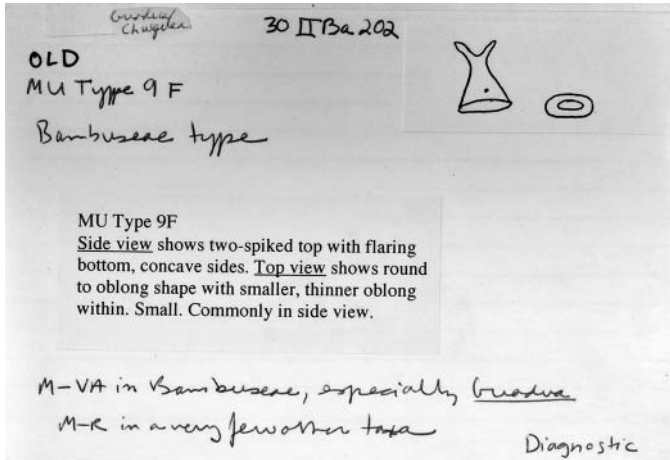 Guadua/
Chusquea
30 II Ba 202
OLD
MU Type 9 F
Bambuseae type
MU Type 9F
Side view shows two-spiked top with flaring
bottom, concave sides. Top view shows round
to oblong shape with smaller, thinner oblong
within. Small. Commonly in side view.
M-VA in Bambuseae, especially Guadua
M-R in a very few other taxa
Diagnostic